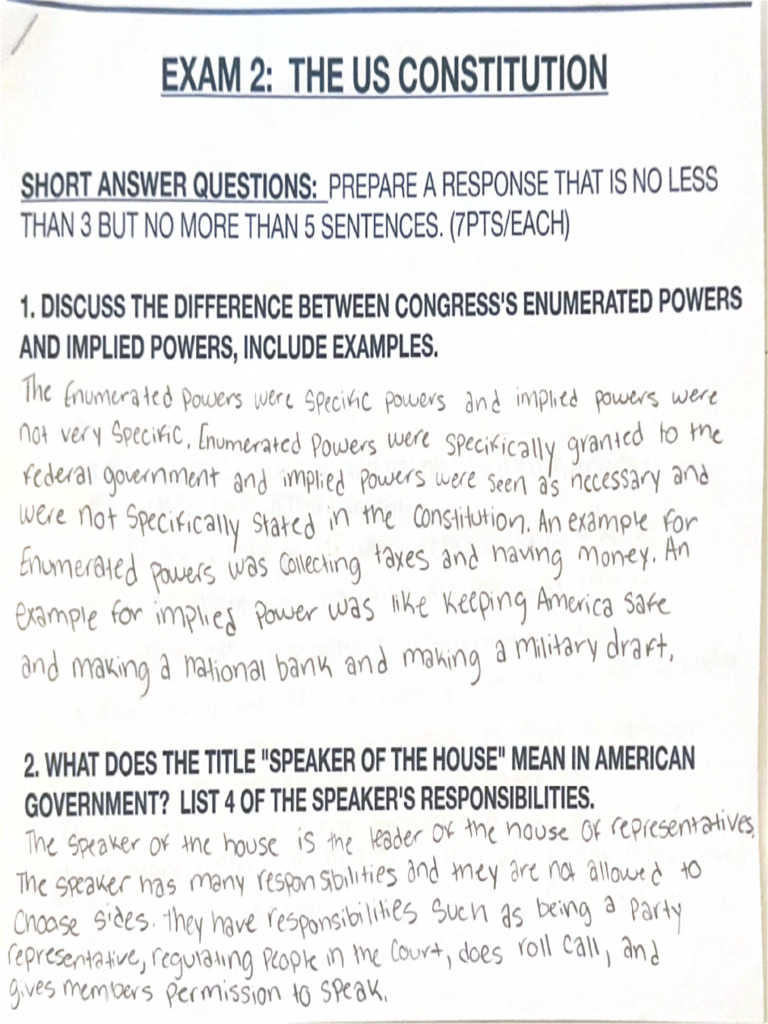 EXAM 2: THE US CONSTITUTION
SHORT ANSWER QUESTIONS: PREPARE A RESPONSE THAT IS NO LESS
THAN 3 BUT NO MORE THAN 5 SENTENCES. (7PTS/EACH)
1. DISCUSS THE DIFFERENCE BETWEEN CONGRESS'S ENUMERATED POWERS
AND IMPLIED POWERS, INCLUDE EXAMPLES.
The Enumerated powers were specific powers and implied powers were
not very specific. Enumerated Powers were specifically granted to the
federal government and implied powers were seen as necessary and
were not specifically stated in the constitution. An example for
Enumerated powers was collecting taxes and having money. An
example for implied power was like keeping America safe
and making a national bank and making a military draft.
2. WHAT DOES THE TITLE "SPEAKER OF THE HOUSE" MEAN IN AMERICAN
GOVERNMENT? LIST 4 OF THE SPEAKER'S RESPONSIBILITIES.
The speaker of the house is the leader of the house of representatives.
The speaker has many responsibilities and they are not allowed to
choose sides. They have responsibilities such as being a party
representative, regulating people in the court, does roll call, and
gives members permission to speak.